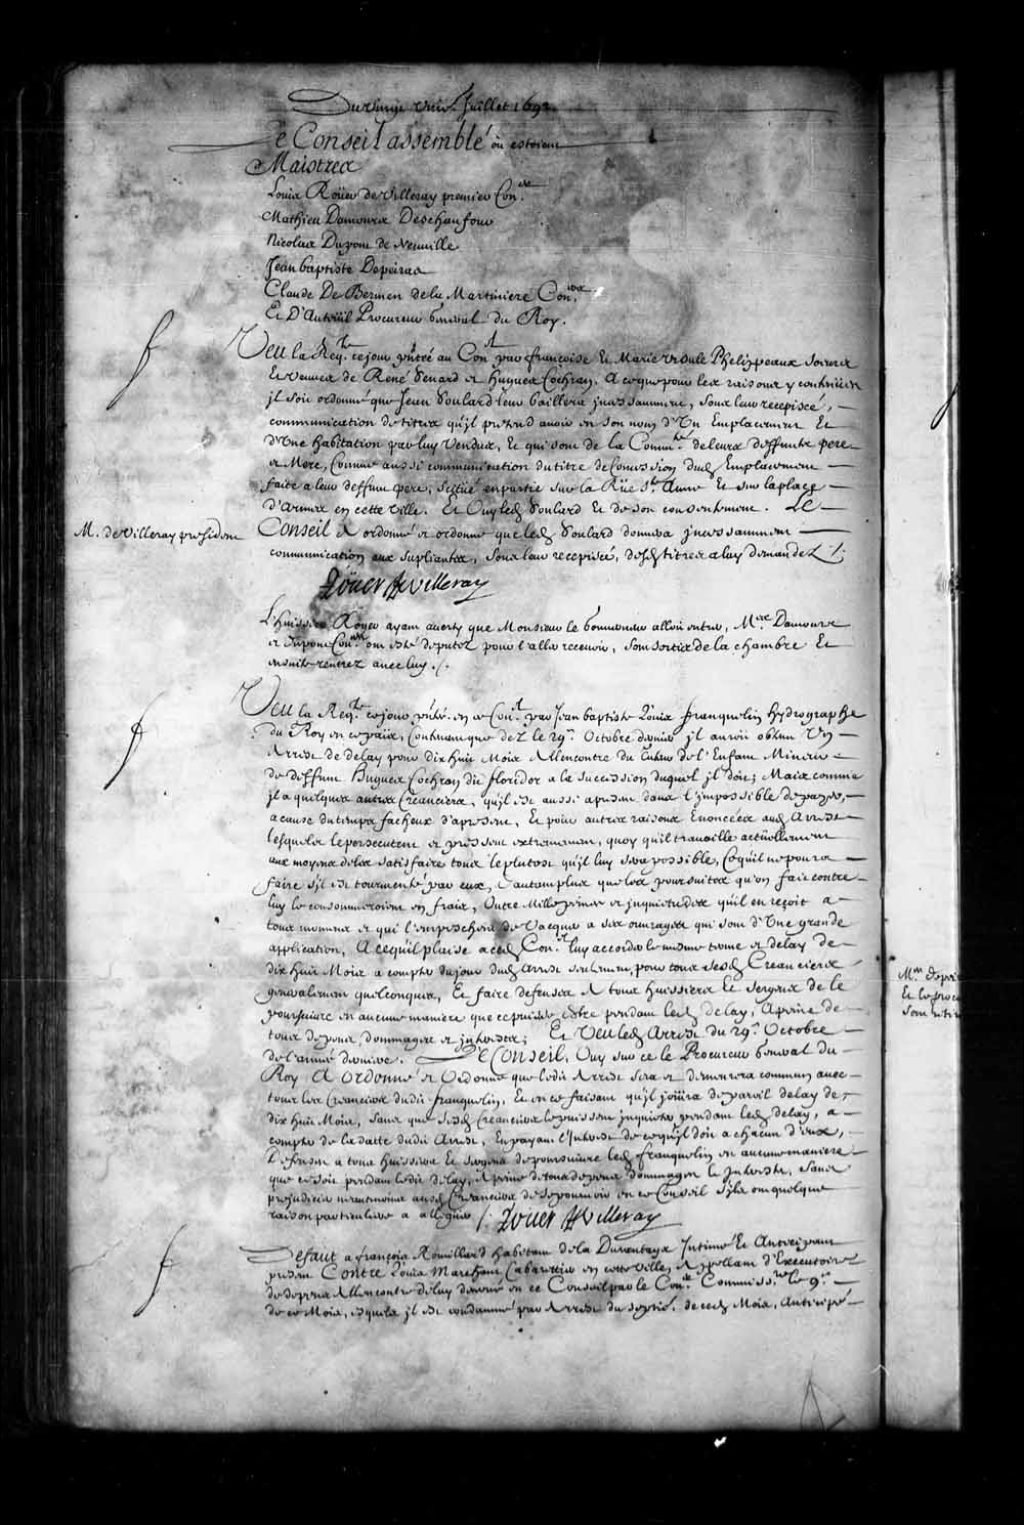 Du vingt uniē. Juillet 1692.
Le Conseil assemblé où estoient
Maistres
Louis Roüer de Villeray premier Con.er
Mathieu Damours Deschaufour
Nicolas Dupont de Neuville
Jean baptiste Depeiras
Claude De Bermen dela Martiniere Con.ers
Et D'Auteüil Procureur general du Roy.
Veu la Req.te ce jour pñtée au Con.l par françoise Et Marie Ursule Phelippeaux soeurs
Et veuves de René Senard et Hugues Cochran, A ce que pour les raisons y contenües
jl soit ordonné que Jean Soulard leur baillera jncessamment, soubs leur recepissé,
communication de titres qu'jl pretend avoir en son nom d'Un Emplacement Et
d'Une habitation par luy Vendus, Et qui sont de la Comm.té deleurs deffunts pere
et Mere, Comme aussi communication du titre de Concession dud Emplacement
faite a leur deffunt pere, scitüé en partie sur la Rüe S.te Anne Et sur laplace
d'armes en cette ville. Et Ouy led Soulard Et de son consentement. Le
M. de Villeray president
Conseil A ordonné et ordonne que led Soulard donnera jncessamment
communication aux supliantes, soubs leur recepissé, desd titres a luy demandez ./.
Roüer de Villeray
L'huissier Roger ayant averty que Monsieur le Gouverneur alloit entrer, M.rs Damours
et Dupont Con.ers ont esté deputez pour l'aller recevoir, sont sortis de la chambre Et
ensuite rentrez avec luy ./.
Veu la Req.te ce jour pñtée en ce Con.l par Jean baptiste Loüis franquelin hydrographe
du Roy en ce païs, Contenant que dez le 29.e Octobre dernier jl auroit obtenu Un
Arrest de delay pour dix huit Mois A l'encontre du tuteur de l'Enfant Mineur
de deffunt Hugues Cochran dit floridor a la succession duquel jl doit; Mais comme
jl a quelques autres Creanciers, qu'jl est aussi apresent dans l'jmpossible de payer,
a cause du temps facheux d'apresent, Et pour autres raisons Enoncées aud Arrest
lesquels le persecutent et pressent extremement, quoy qu'il travaille actüellement
aux moyens de les satisfaire tous le plutost qu'jl luy sera possible, Ce qu'il ne poura
faire s'jl est tourmenté par eux, d'autant plus que les poursuites qu'on fait contre
luy le consommeroient en frais, Outre Mille peines et jnquietudes qu'il en reçoit a
tous momens et qui l'empeschent de Vacquer a ses ouvrages qui sont d'Une grande
application, A ce qu'il plaise a ced Con.l luy accorder le mesme terme et delay de
dix huit Mois a compter du jour dud Arrest seulement, pour tous sesd Creanciers
generalement quelconques, Et faire defenses A tous huissiers Et sergens de le
poursuivre en aucune maniere que ce puisse estre pendant led delay, A peine de
tous depens, dommages et jnterests; Et Veu led Arrest du 29.e Octobre
de l'année derniere. Le Conseil, Ouy sur ce le Procureur general du
Roy A Ordonné et Ordonne que ledit Arrest sera et demeurera commun avec
tous les Creanciers dudit franquelin, Et en ce faisant qu'jl joüira de pareil delay de
dix huit Mois, sans que sesd Creanciers le puissent jnquieter pendant led delay, a
compter de la datte dudit Arrest, En payant l'Interest de ce qu'jl doit a chacun d'eux,
Defenses a tous huissiers Et sergens de poursuivre led franquelin en aucune maniere
que ce soit pendant ledit delay, A peine de tous depens dommages et Interests, sans
prejudicier neantmoins ausd Creanciers de se pourvoir en ce Conseil s'jls ont quelque
raison particuliere a alleguer ./. Roüer de Villeray
Defaut a françois Romillard habitant dela Durantaye Intimé Et Anticipant
present Contre Loüis Marchant Cabaretier en cette ville, Appellant d'Executoire
de depens A l'encontre deluy decerné en ce Conseil par le Con.er Commiss.re le 9.e
de ce Mois, esquels jl est condamné par Arrest du sept.e de ced Mois, Anticipé
M.rs depei
Et le proc
sont